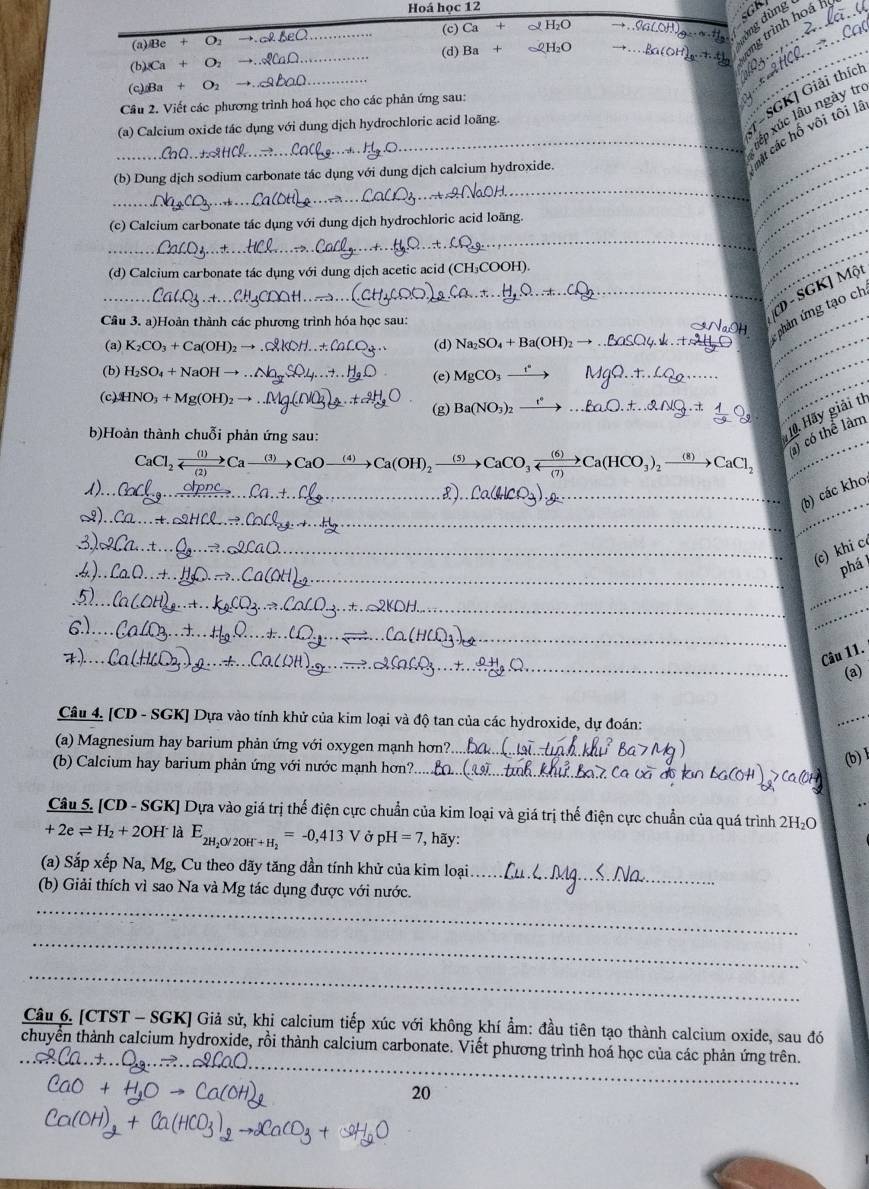 Hoá học 12
(a) Be + O₂ → 2BeO (c) Ca + 2H₂O → Ca(OH)₂ + H₂
(b) 2Ca + O₂ → 2CaO (d) Ba + 2H₂O → Ba(OH)₂ + H₂
(c) Ba + O₂ → 2BaO
Câu 2. Viết các phương trình hoá học cho các phản ứng sau:
(a) Calcium oxide tác dụng với dung dịch hydrochloric acid loãng.
CaO + 2HCl → CaCl₂ + H₂O
(b) Dung dịch sodium carbonate tác dụng với dung dịch calcium hydroxide.
Na₂CO₃ + Ca(OH)₂ → CaCO₃ + 2NaOH
(c) Calcium carbonate tác dụng với dung dịch hydrochloric acid loãng.
CaCO₃ + HCl → CaCl₂ + H₂O + CO₂
(d) Calcium carbonate tác dụng với dung dịch acetic acid (CH₃COOH).
CaCO₃ + CH₃COOH → (CH₃COO)₂Ca + H₂O + CO₂
Câu 3. a)Hoàn thành các phương trình hóa học sau:
(a) K₂CO₃ + Ca(OH)₂ → 2KOH + CaCO₃ (d) Na₂SO₄ + Ba(OH)₂ → BaSO₄ ↓ + 2H₂O 2NaOH
(b) H₂SO₄ + NaOH → Na₂SO₄ + H₂O (e) MgCO₃ —t°→ MgO + CO₂
(c) HNO₃ + Mg(OH)₂ → Mg(NO₃)₂ + 2H₂O (g) Ba(NO₃)₂ —t°→ BaO + 2NO₂ + 1/2 O₂
b)Hoàn thành chuỗi phản ứng sau:
CaCl₂ ⇄(1)(2) Ca —(3)→ CaO —(4)→ Ca(OH)₂ —(5)→ CaCO₃ ⇄(6)(7) Ca(HCO₃)₂ —(8)→ CaCl₂
1) CaCl₂ —đpnc→ Ca + Cl₂ 8) Ca(HCO₃)₂
2) Ca + 2HCl → CaCl₂ + H₂
3) 2Ca + O₂ → 2CaO
4) CaO + H₂O → Ca(OH)₂
5) Ca(OH)₂ + K₂CO₃ → CaCO₃ + 2KOH
6) CaCO₃ + H₂O + CO₂ ⇌ Ca(HCO₃)₂
7) Ca(HCO₃)₂ + Ca(OH)₂ → 2CaCO₃ + 2H₂O
Câu 4. [CD - SGK] Dựa vào tính khử của kim loại và độ tan của các hydroxide, dự đoán:
(a) Magnesium hay barium phản ứng với oxygen mạnh hơn? Ba (vì tính khử Ba > Mg)
(b) Calcium hay barium phản ứng với nước mạnh hơn? Ba (vì tính khử Ba > Ca và độ tan Ba(OH)₂ > Ca(OH)₂
Câu 5. [CD - SGK] Dựa vào giá trị thế điện cực chuẩn của kim loại và giá trị thế điện cực chuẩn của quá trình 2H₂O
+ 2e ⇌ H₂ + 2OH⁻ là E₂H₂O/2OH⁻+H₂ = -0,413 V ở pH = 7, hãy:
(a) Sắp xếp Na, Mg, Cu theo dãy tăng dần tính khử của kim loại Cu < Mg < Na
(b) Giải thích vì sao Na và Mg tác dụng được với nước.
Câu 6. [CTST – SGK] Giả sử, khi calcium tiếp xúc với không khí ẩm: đầu tiên tạo thành calcium oxide, sau đó
chuyển thành calcium hydroxide, rồi thành calcium carbonate. Viết phương trình hoá học của các phản ứng trên.
2Ca + O₂ → 2CaO
CaO + H₂O → Ca(OH)₂
20
Ca(OH)₂ + Ca(HCO₃)₂ → 2CaCO₃ + 2H₂O
SGK]
trình hoá
ST - SGK] Giải thích
tiếp xúc lâu ngày tro
mặt các hố vôi tôi lâu
[CD - SGK] Một
phản ứng tạo ch
10. Hãy giải th
(a) có thể làm
(b) các kho
(c) khi c
phá
Câu 11.
(a)
(b)